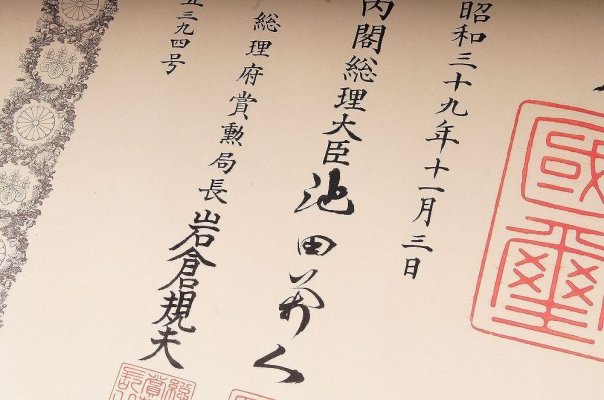 昭和三十九年十一月三日
内閣総理大臣池田勇人
総理府賞勲局長岩倉規夫
五三九四号
國璽